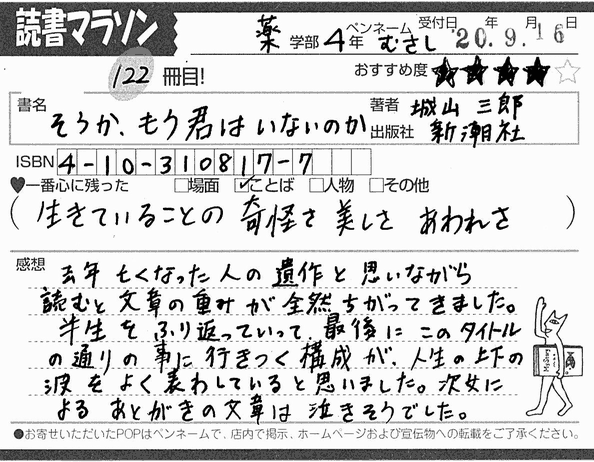 読書マラソン
薬 学部 4年 ペンネーム むさし 受付日 20年 9月 16日
122 冊目! おすすめ度 ★★★★☆
書名 そうか、もう君はいないのか 著者 城山 三郎
出版社 新潮社
ISBN 4-10-310817-7
♥一番心に残った □場面 ☑ことば □人物 □その他
(生きていることの 奇怪さ 美しさ あわれさ)
感想 去年 亡くなった 人の 遺作と 思いながら
読むと 文章の 重みが 全然 ちがってきました。
半生を ふり返っていって、最後に このタイトル
の 通りの 事に 行きつく 構成が、人生の 上下の
波を よく 表わしていると 思いました。次女に
よる あとがきの 文章は 泣きそうでした。
●お寄せいただいたPOPはペンネームで、店内で掲示、ホームページおよび宣伝物への転載をご了承ください。